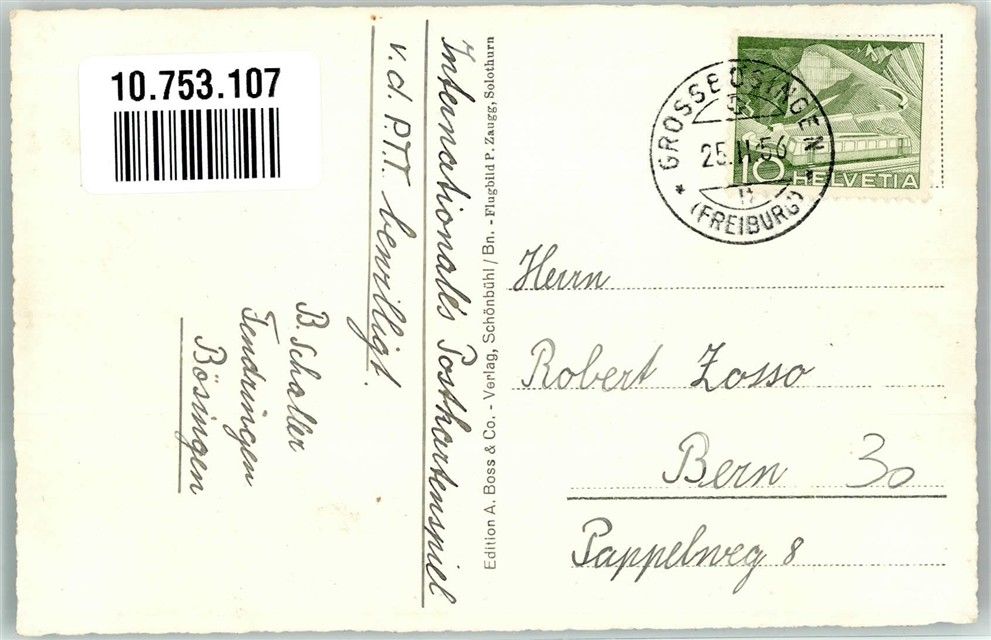 10.753.107
Internationalls Posthartenspiel
v. d. P.T.T. bewilligt.
B. Schaller
Tendringen
Bösingen
Edition A. Boss & Co. - Verlag, Schönbühl / Bn. - Flugbild P. Zaugg, Solothurn
GROSSBÖSINGEN
25.II.56
(FREIBURG)
10 HELVETIA
Herrn
Robert Zosso
Bern 30
Pappelweg 8